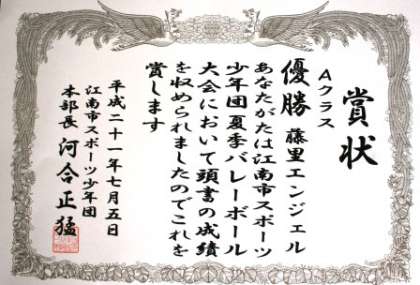 賞状
Aクラス
優勝 藤里エンジェル
あなたがたは江南市スポーツ
少年団夏季バレーボール
大会において頭書の成績
を収められましたのでこれを
賞します
平成二十一年七月五日
江南市スポーツ少年団
本部長 河合正猛